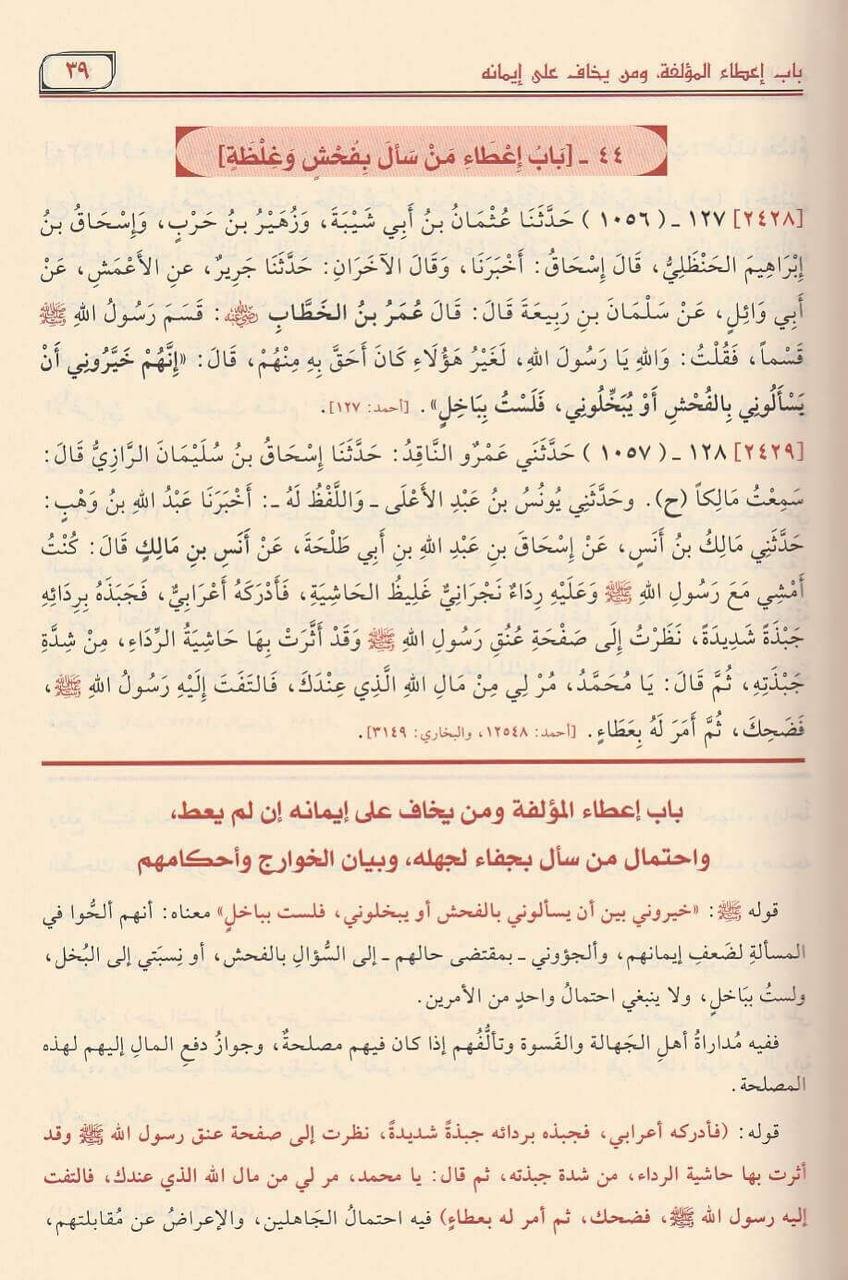 باب إعطاء المؤلفة، ومن يخاف على إيمانه
٣٩
٤٤ ـ [بَابُ إِعْطَاءِ مَنْ سَأَلَ بِفُحْشٍ وَغِلْظَةٍ]
[٢٤٢٨] ١٢٧ ـ (١٠٥٦) حَدَّثَنَا عُثْمَانُ بنُ أَبِي شَيْبَةَ، وَزُهَيْرُ بنُ حَرْبٍ، وَإِسْحَاقُ بنُ
إِبْرَاهِيمَ الحَنْظَلِيُّ، قَالَ إِسْحَاقُ: أَخْبَرَنَا، وَقَالَ الآخَرَانِ: حَدَّثَنَا جَرِيرٌ، عنِ الأَعْمَشِ، عَنْ
أَبِي وَائِلٍ، عَنْ سَلْمَانَ بنِ رَبِيعَةَ قَالَ: قَالَ عُمَرُ بنُ الخَطَّابِ رضي الله عنه: قَسَمَ رَسُولُ اللهِ ﷺ
قَسْماً، فَقُلْتُ: وَاللهِ يَا رَسُولَ اللهِ، لَغَيْرُ هَؤُلَاءِ كَانَ أَحَقَّ بِهِ مِنْهُمْ، قَالَ: «إِنَّهُمْ خَيَّرُونِي أَنْ
يَسْأَلُونِي بِالفُحْشِ أَوْ يُبَخِّلُونِي، فَلَسْتُ بِبَاخِلٍ». [أحمد: ١٢٧].
[٢٤٢٩] ١٢٨ ـ (١٠٥٧) حَدَّثَنِي عَمْرٌو النَّاقِدُ: حَدَّثَنَا إِسْحَاقُ بنُ سُلَيْمَانَ الرَّازِيُّ قَالَ:
سَمِعْتُ مَالِكاً (ح). وحَدَّثَنِي يُونُسُ بنُ عَبْدِ الأَعْلَى ـ وَاللَّفْظُ لَهُ ـ: أَخْبَرَنَا عَبْدُ اللهِ بنُ وَهْبٍ:
حَدَّثَنِي مَالِكُ بنُ أَنَسٍ، عَنْ إِسْحَاقَ بنِ عَبْدِ اللهِ بنِ أَبِي طَلْحَةَ، عَنْ أَنَسِ بنِ مَالِكٍ قَالَ: كُنْتُ
أَمْشِي مَعَ رَسُولِ اللهِ ﷺ وَعَلَيْهِ رِدَاءٌ نَجْرَانِيٌّ غَلِيظُ الحَاشِيَةِ، فَأَدْرَكَهُ أَعْرَابِيٌّ، فَجَبَذَهُ بِرِدَائِهِ
جَبْذَةً شَدِيدَةً، نَظَرْتُ إِلَى صَفْحَةِ عُنُقِ رَسُولِ اللهِ ﷺ وَقَدْ أَثَّرَتْ بِهَا حَاشِيَةُ الرِّدَاءِ، مِنْ شِدَّةِ
جَبْذَتِهِ، ثُمَّ قَالَ: يَا مُحَمَّدُ، مُرْ لِي مِنْ مَالِ اللهِ الَّذِي عِنْدَكَ، فَالتَفَتَ إِلَيْهِ رَسُولُ اللهِ ﷺ،
فَضَحِكَ، ثُمَّ أَمَرَ لَهُ بِعَطَاءٍ. [أحمد: ١٢٥٤٨، والبخاري: ٣١٤٩].
باب إعطاء المؤلفة ومن يخاف على إيمانه إن لم يعط،
واحتمال من سأل بجفاء لجهله، وبيان الخوارج وأحكامهم
قوله ﷺ: «خيروني بين أن يسألوني بالفحش أو يبخلوني، فلست بباخلٍ» معناه: أنهم ألحُّوا في
المسألةِ لضَعفِ إيمانهم، وألجؤوني ـ بمقتضى حالهم ـ إلى السُّؤالِ بالفحش، أو نِسبَتي إلى البُخل،
ولستُ بِبَاخلٍ، ولا ينبغي احتمالُ واحدٍ من الأمرين.
ففيه مُداراةُ أهلِ الجَهالة والقَسوة وتألُّفُهم إذا كان فيهم مصلحةٌ، وجوازُ دفعِ المالِ إليهم لهذه
المصلحة.
قوله: (فأدركه أعرابي، فجبذه بردائه جبذةً شديدةً، نظرت إلى صفحة عنق رسول الله ﷺ وقد
أثرت بها حاشية الرداء، من شدة جبذته، ثم قال: يا محمد، مر لي من مال الله الذي عندك، فالتفت
إليه رسول الله ﷺ، فضحك، ثم أمر له بعطاءٍ) فيه احتمالُ الجَاهلين، والإعراضُ عن مُقابلتهم،